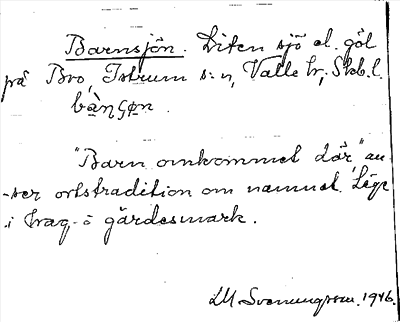 Barnsjön. Liten sjö el. göl
på Bro, Istrum s:n, Valle hr, Skb.l.
bàṇʃøn.
"Barn omkommet där" an-
-ser ortstradition om namnet. Läge
i hag- o gärdesmark.
LM Svenungsson. 1946.